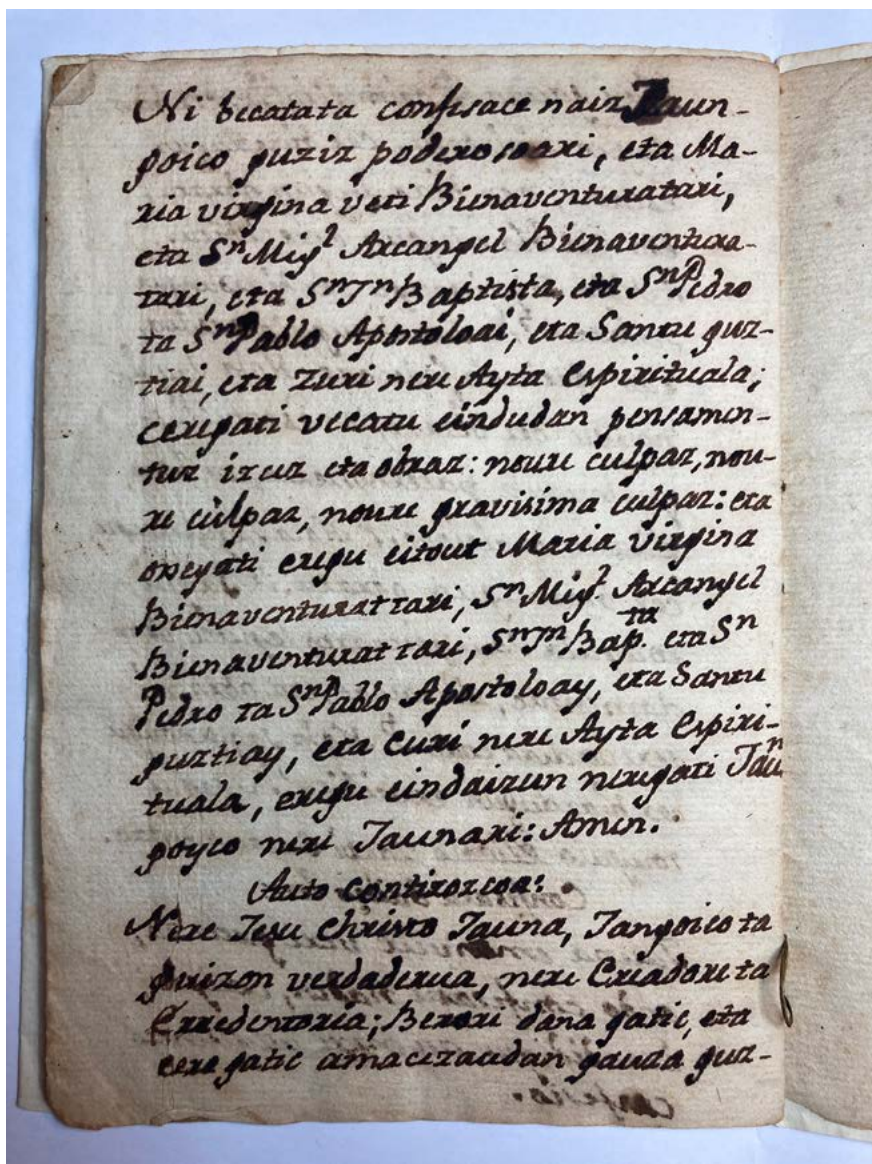 Ni becatata confesace naiz Jaun-
goico guziz poderosoari, eta Ma-
ria virgina veti Bienaventuratari,
eta Sⁿ Migˡ Arcangel Bienaventura-
tari, eta Sⁿ Jⁿ Baptista, eta Sⁿ Pedro
ta Sⁿ Pablo Apostoloai, eta Santu guz-
tiai, eta Zuri nere Ayta Espirituala;
ceregati vecatu eindudan pensamen-
tuz izcuz eta obraz: neure culpaz, neu-
re culpaz, neure gravisima culpaz: eta
orregati eregu eitout Maria virgina
Bienaventurattari, Sⁿ Migˡ. Arcangel
Bienaventurattari, Sⁿ Jⁿ Bap.ᵗᵃ eta Sⁿ
Pedro ta Sⁿ Pablo Apostoloay, eta Santu
guztiay, eta Curi nere Ayta Espiri-
tuala, eregu eindaizun neregati Jauⁿ
goyco nere Jaunari: Amen.
Auto contirozcoa:
Nere Jesu Christo Jauna, Jangoico ta
guizon verdaderua, nere Criadore ta
Erredentoria; Berori dana gatic, eta
cere gatic amacezaudan gauza guz-